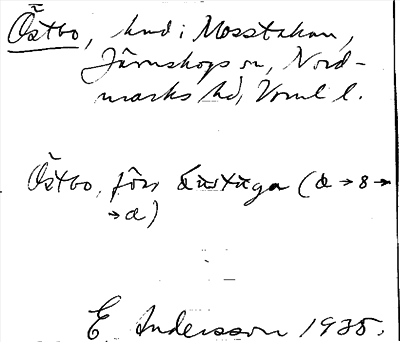 Östbo, hmd i Mosstakan,
Järnskogs sn, Nord-
marks hd, Vrml l.
Östbo, förr (a→8→
→a)
E Andersson 1935.